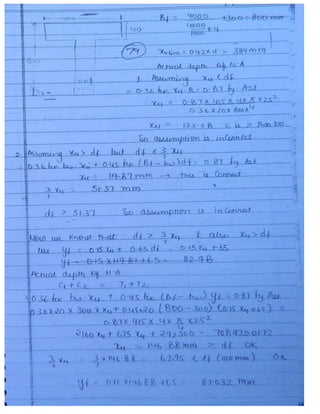 Bf = 4000 +300 = 800 mm
4000 +4
4000
100
79
xulim = 0.42×d = 384 mm
Actual depth of N.A
1. Assuming xu < df
= 0.36 fck xu B = 0.87 fy Ast
xu = 0.87×415×4×π×25²
0.36×20×800×4
xu = 123.08
So assumption is incorrect
2. Assuming xu > df but df <
3/7 xu
0.36 fck bw xu + 0.45 fck (Bf - bw) df = 0.87 fy Ast
xu = 119.87 mm → this is correct
3/7 xu = 51.37 mm
df > 51.37 So assumption is incorrect
Now we know that df > 3/7 xu & also xu > df
Use yf = 0.15 xu + 0.65 df = 0.15 xu + 65
yf = 0.15×119.87+65 = 82.98
Actual depth of N.A
C1+C2 = T1+T2
0.36 fck bw xu + 0.45 fck (Bf - bw) yf = 0.87 fy Ast
0.36×20×300×xu + 0.45×20 (800-300)(0.15 xu+65) =
0.87×415×4×π×25²
2160 xu + 675 xu + 292500 = 708920.0172
xu = 146.88 mm > df OK
3/7 xu = 3/7×146.88 = 62.95 < df (100 mm) OK
yf = 0.15×146.88+65 = 87.032 mm